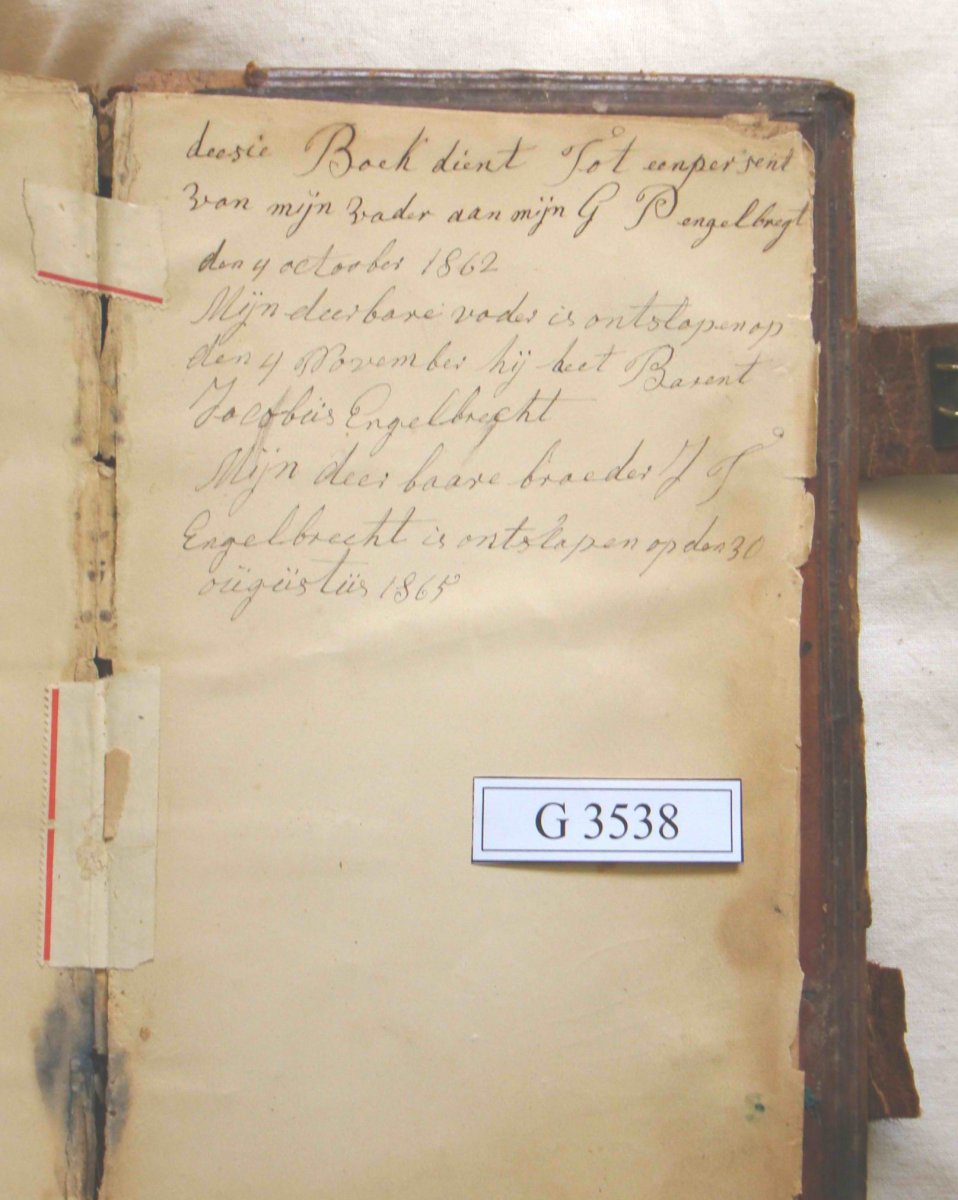 deesie Boek dient Tot eenpersent
van mijn vader aan mijn G P engelbregt
den 4 october 1862
Mijn deerbare vader is ontslapen op
den 4 November hij heet Barent
Jacobüs Engelbrecht
Mijn deer baare broeder J T
Engelbrecht is ontslapen op den 30
oügüstüs 1865
G 3538